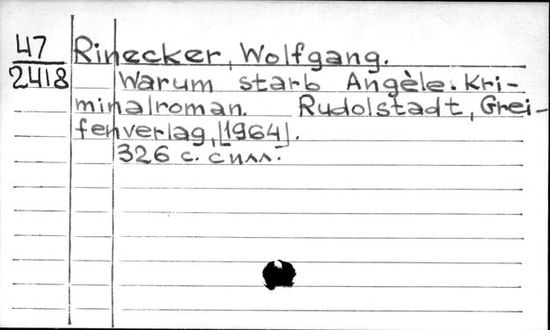 47
2418
Rinecker, Wolfgang.
Warum starb Angèle. Kri-
minalroman. Rudolstadt, Grei-
fenverlag, [1964].
326 с. с илл.